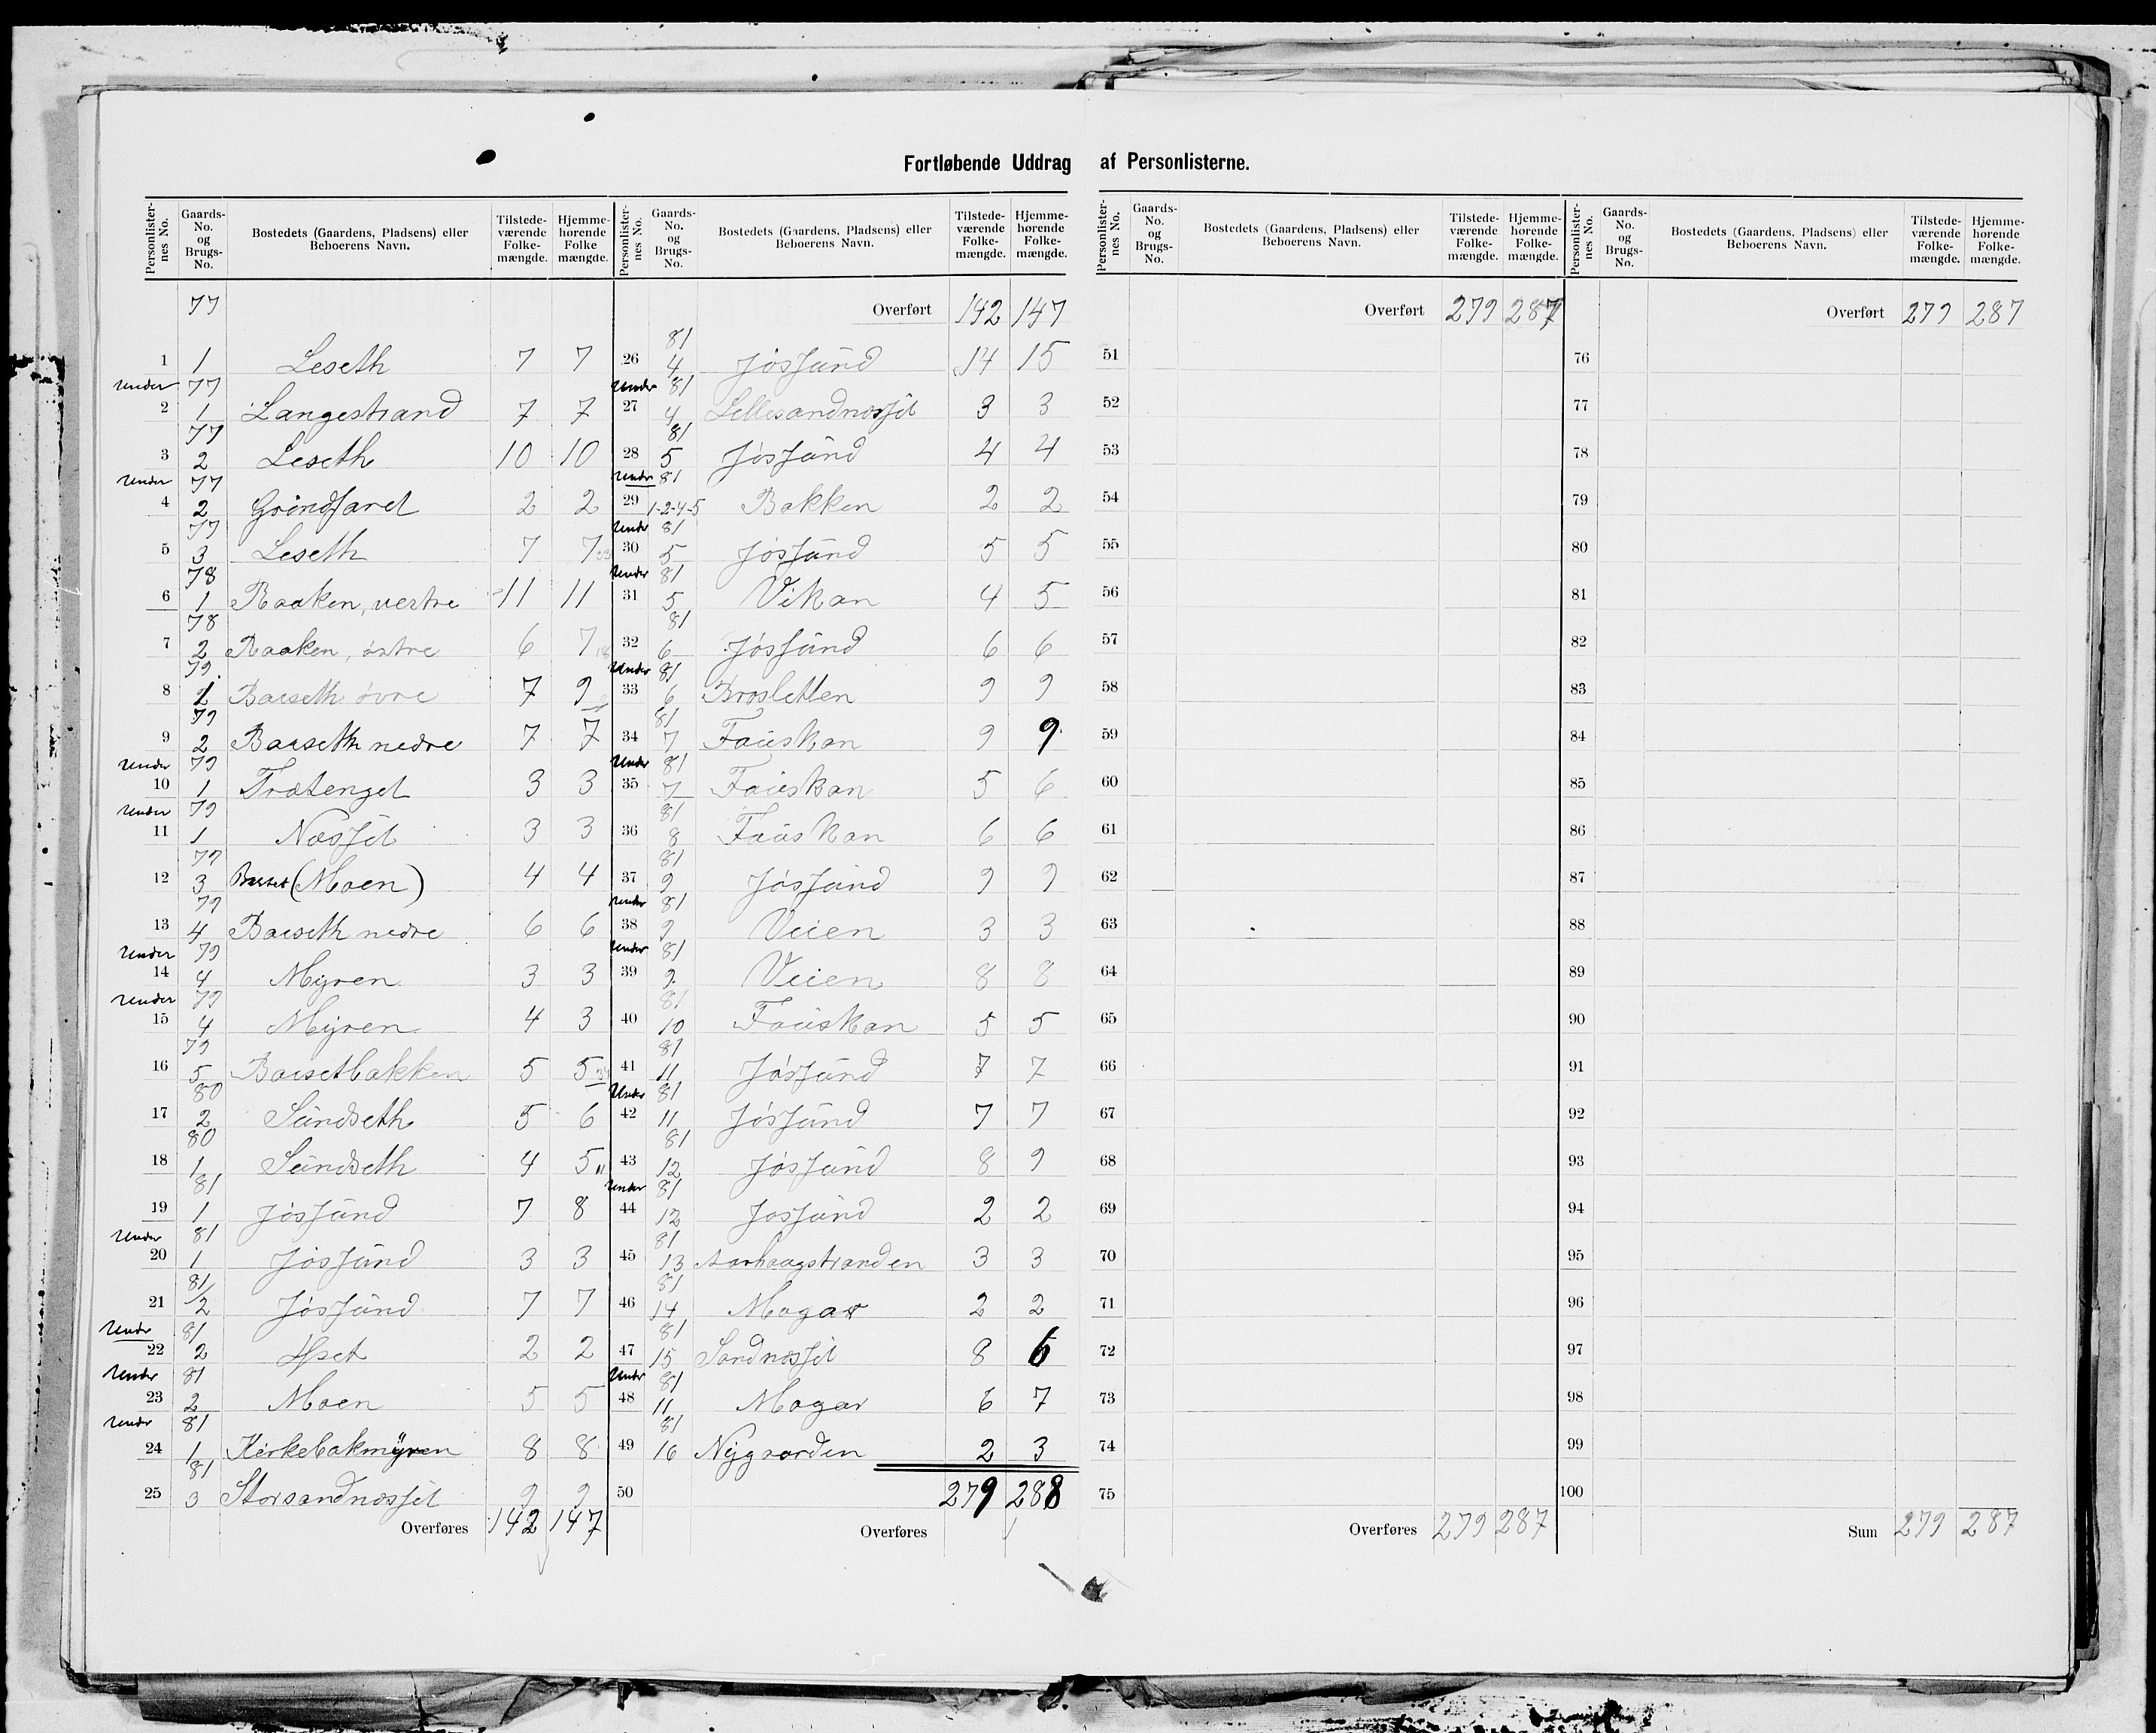 Fortløbende Uddrag af Personlisterne.
Personlisternes No. Gaards-No. og Brugs-No. Bostedets (Gaardens, Pladsens) eller Beboerens Navn. Tilstedeværende Folkemængde. Hjemmehørende Folkemængde.
77
1 1 Leseth 7 7
Under 77
2 1 Langestrand 7 7
77
3 2 Leseth 10 10
Under 77
4 2 Grindfaret 2 2
77
5 3 Leseth 7 7
78
6 1 Raaken, vestre 11 11
78
7 2 Raaken, østre 6 7
79
8 1 Barseth øvre 7 9
79
9 2 Barseth nedre 7 7
Under 79
10 1 Trætenget 3 3
Under 79
11 1 Næsfit 3 3
79
12 3 Barset (Moen) 4 4
79
13 4 Barseth nedre 6 6
Under 79
14 4 Myren 3 3
Under 79
15 4 Myren 4 3
79
16 5 Barsetbakken 5 5
80
17 2 Sundseth 5 6
80
18 1 Sundseth 4 5
81
19 1 Jøssund 7 8
Under 81
20 1 Jøssund 3 3
81
21 2 Jøssund 7 7
Under 81
22 2 2 2
Under 81
23 2 Moen 5 5
Under 81
24 1 Kirkebakmyren 8 8
81
25 3 Storsandnæsfit 9 9
Overføres 142 147
Overført 142 147
81
26 4 Jøssund 14 15
Under 81
27 4 Lillesandnæsfit 3 3
81
28 5 Jøssund 4 4
Under 81
29 1-2-4-5 Bakken 2 2
Under 81
30 5 Jøssund 5 5
Under 81
31 5 Vikan 4 5
81
32 6 Jøssund 6 6
Under 81
33 6 Brosletten 9 9
81
34 7 Fauskan 9 9
Under 81
35 7 Fauskan 5 6
81
36 8 Fauskan 6 6
81
37 9 Jøssund 9 9
Under 81
38 9 Veien 3 3
Under 81
39 9 Veien 8 8
81
40 10 Fauskan 5 5
81
41 11 Jøssund 7 7
Under 81
42 11 Jøssund 7 7
81
43 12 Jøssund 8 9
Under 81
44 12 Jossund 2 2
81
45 13 Aarhaugstranden 3 3
81
46 14 Mogar 2 2
81
47 15 Sandnæsfit 8 6
Under 81
48 11 Mogar 6 7
81
49 16 Nygaarden 2 3
50 279 288
Overføres
Personlisternes No. Gaards-No. og Brugs-No. Bostedets (Gaardens, Pladsens) eller Beboerens Navn. Tilstedeværende Folkemængde. Hjemmehørende Folkemængde.
Overført 279 287
51
52
53
54
55
56
57
58
59
60
61
62
63
64
65
66
67
68
69
70
71
72
73
74
75
Overføres 279 287
Overført 279 287
76
77
78
79
80
81
82
83
84
85
86
87
88
89
90
91
92
93
94
95
96
97
98
99
100
Sum 279 287